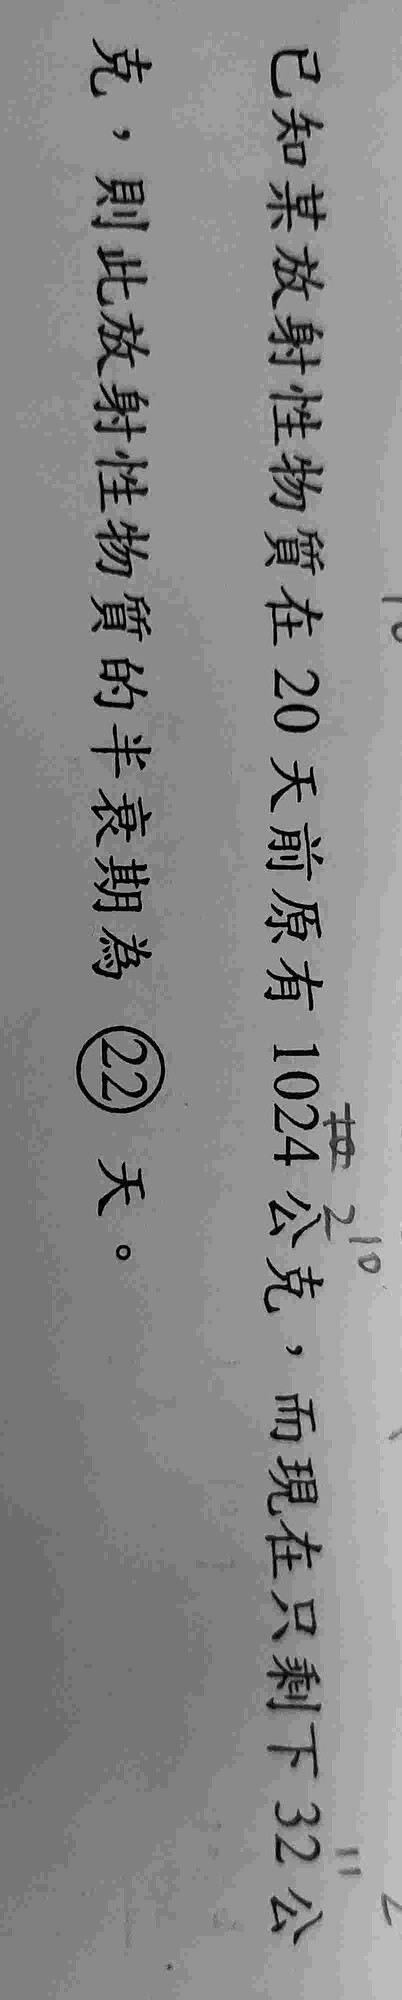 已知某放射性物質在20天前原有1024公克，而現在只剩下32公
2^10
克，則此放射性物質的半衰期為 ㉒ 天。